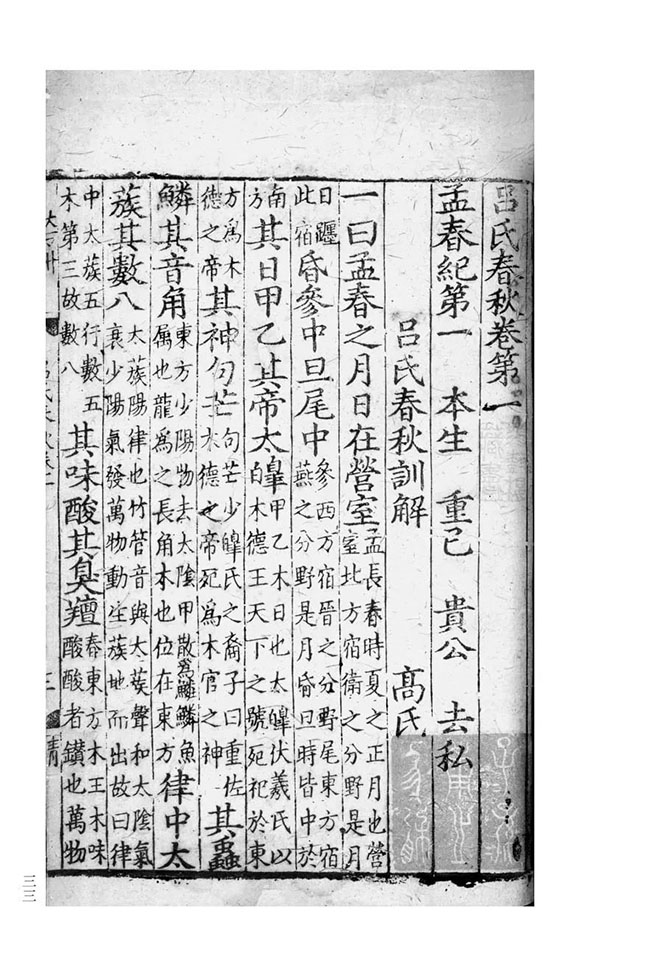 呂氏春秋卷第一
孟春紀第一 本生 重己 貴公 去私
呂氏春秋訓解 高氏
一曰孟春之月日在營室孟長春時夏之正月也營室北方宿衛之分野是月
日躔此宿昏參中旦尾中參西方宿晉之分野尾東方宿燕之分野是月昏旦時皆中於
南方其日甲乙其帝太皥甲乙木日也太皥伏羲氏以木德王天下之號死祀於東
方為木德之帝其神句芒句芒少皥氏之裔子曰重佐木德之帝死為木官之神其蟲
鱗其音角東方少陽物去太陰甲散為鱗鱗魚屬也龍為之長角木也位在東方律中太
蔟其數八太蔟陽律也竹管音與太蔟聲和太陰氣衰少陽氣發萬物動生蔟地而出故曰律
中太蔟五行數五木第三故數八其味酸其臭羶春東方木王木味酸酸者鑽也萬物
三三